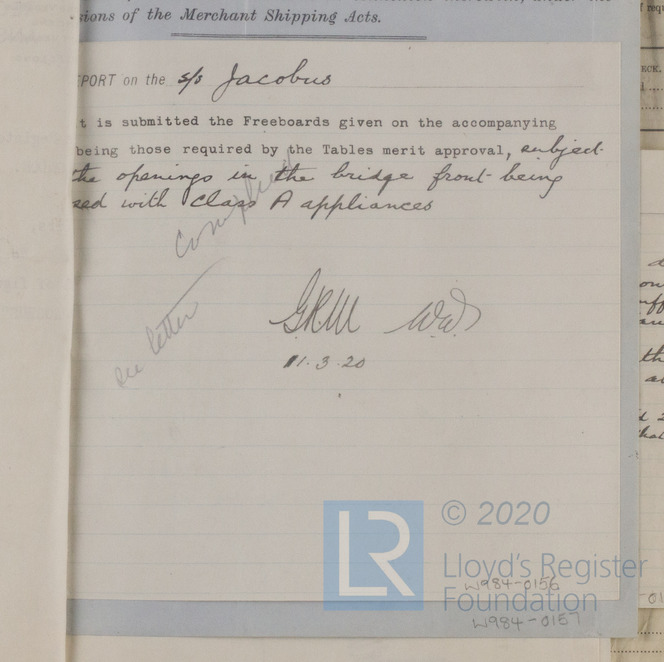 sions of the Merchant Shipping Acts.
PORT on the s/s Jacobus
t is submitted the Freeboards given on the accompanying
being those required by the Tables merit approval, subject
the openings in the bridge front being
sed with Class A appliances
complied
see letter
G.R.M. W.W.
11.3.20
LR
© 2020
Lloyd's Register
Foundation
W984-0156
W984-0157